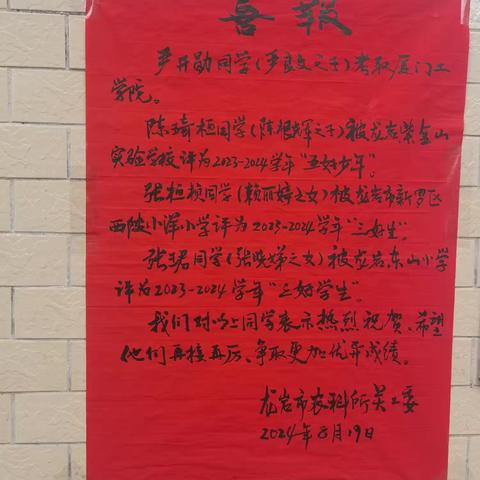 喜报
严开勋同学(严良文之子)考取厦门工
学院。
陈琦桓同学(陈根辉之子)被龙岩紫金山
实验学校评为2023-2024学年"五好少年"。
张桓桢同学(赖丽婷之女)被龙岩市新罗区
西陂小洋小学评为2023-2024学年"三好生"。
张珺同学(张晓娣之女)被龙岩东山小学
评为2023-2024学年"三好学生"。
我们对以上同学表示热烈祝贺、希望
他们再接再厉、争取更加优异成绩。
龙岩市农科所关工委
2024年8月19日